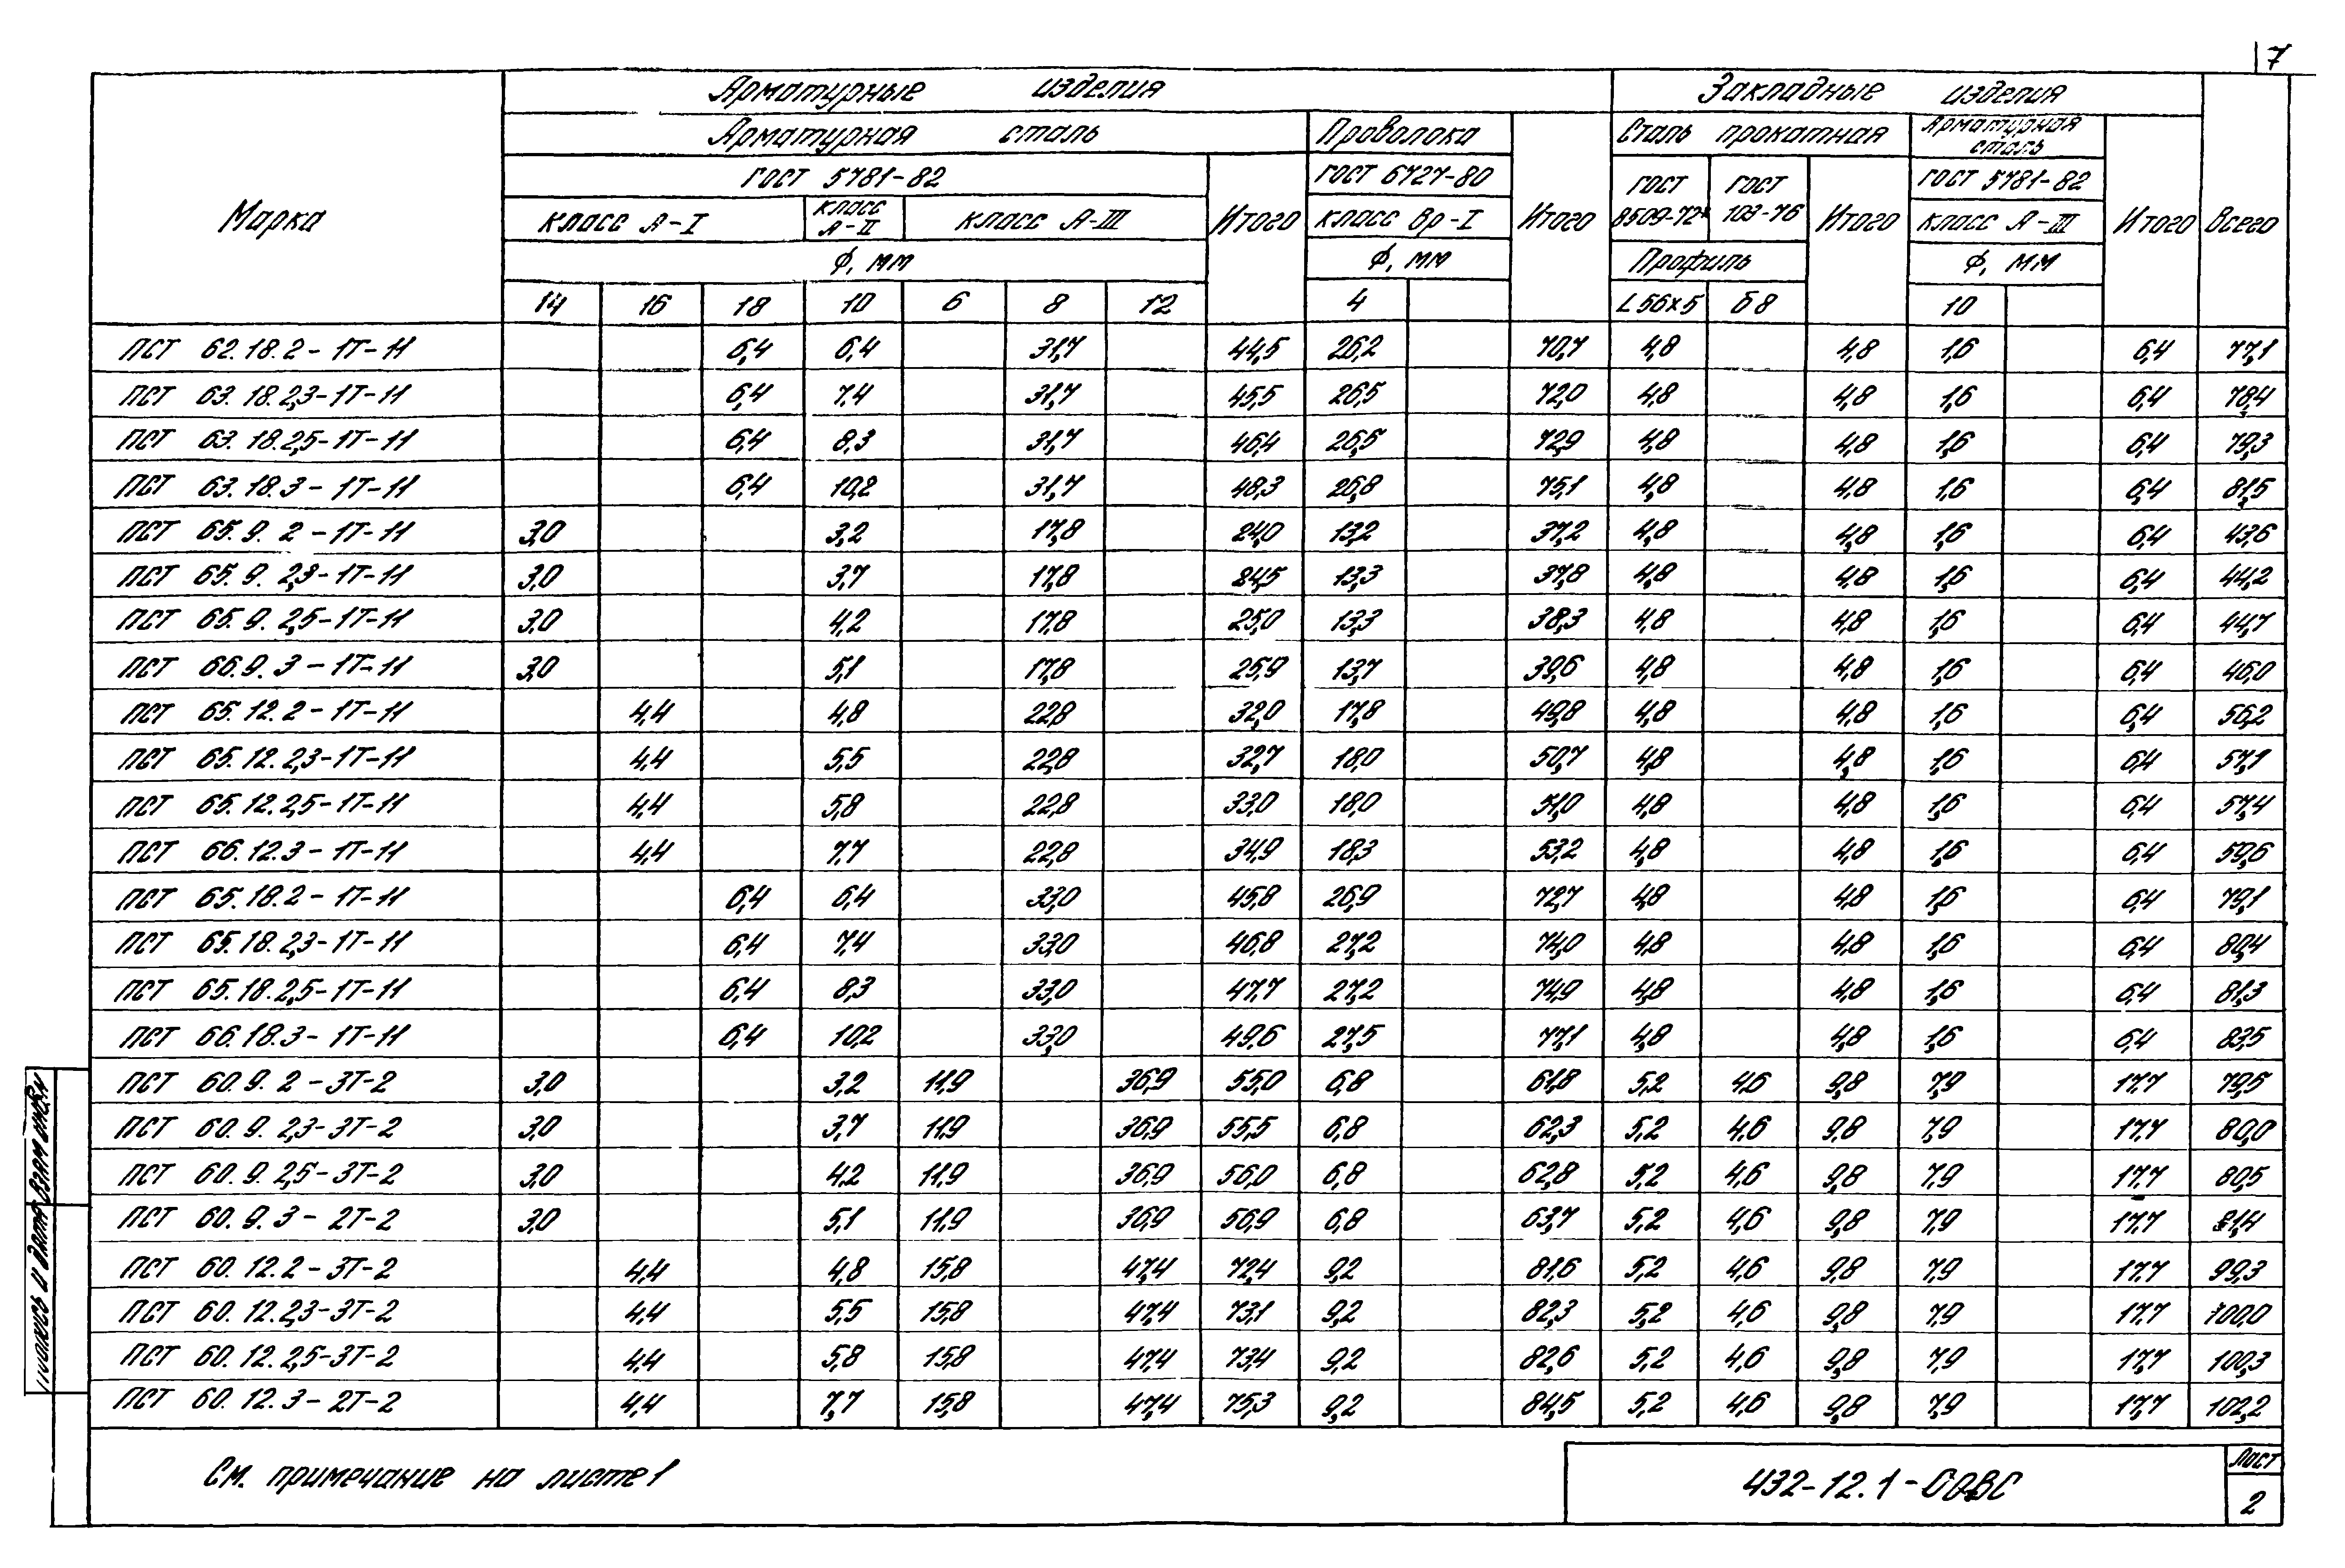 7
Марка Арматурные изделия Закладные изделия Всего
Арматурная сталь Проволока Итого Сталь прокатная Арматурная сталь Итого
ГОСТ 5781-82 Итого ГОСТ 6727-80 ГОСТ 8509-72* ГОСТ 103-76 Итого ГОСТ 5781-82
Класс А-I Класс А-II Класс А-III Класс Вр-I Класс А-III
Ф, мм Ф, мм Профиль Ф, мм
14 16 18 10 6 8 12 4 L56×5 δ8 10
ПСТ 62.18.2-1Т-11 6,4 6,4 31,7 44,5 26,2 70,7 4,8 4,8 1,6 6,4 77,1
ПСТ 63.18.2,3-1Т-11 6,4 7,4 31,7 45,5 26,5 72,0 4,8 4,8 1,6 6,4 78,4
ПСТ 63.18.2,5-1Т-11 6,4 8,3 31,7 46,4 26,5 72,9 4,8 4,8 1,6 6,4 79,3
ПСТ 63.18.3-1Т-11 6,4 10,2 31,7 48,3 26,8 75,1 4,8 4,8 1,6 6,4 81,5
ПСТ 65.9.2-1Т-11 3,0 3,2 17,8 24,0 13,2 37,2 4,8 4,8 1,6 6,4 43,6
ПСТ 65.9.2,3-1Т-11 3,0 3,7 17,8 24,5 13,3 37,8 4,8 4,8 1,6 6,4 44,2
ПСТ 65.9.2,5-1Т-11 3,0 4,2 17,8 25,0 13,3 38,3 4,8 4,8 1,6 6,4 44,7
ПСТ 66.9.3-1Т-11 3,0 5,1 17,8 25,9 13,7 39,6 4,8 4,8 1,6 6,4 46,0
ПСТ 65.12.2-1Т-11 4,4 4,8 22,8 32,0 17,8 49,8 4,8 4,8 1,6 6,4 56,2
ПСТ 65.12.2,3-1Т-11 4,4 5,5 22,8 32,7 18,0 50,7 4,8 4,8 1,6 6,4 57,1
ПСТ 65.12.2,5-1Т-11 4,4 5,8 22,8 33,0 18,0 51,0 4,8 4,8 1,6 6,4 57,4
ПСТ 66.12.3-1Т-11 4,4 7,7 22,8 34,9 18,3 53,2 4,8 4,8 1,6 6,4 59,6
ПСТ 65.18.2-1Т-11 6,4 6,4 33,0 45,8 26,9 72,7 4,8 4,8 1,6 6,4 79,1
ПСТ 65.18.2,3-1Т-11 6,4 7,4 33,0 46,8 27,2 74,0 4,8 4,8 1,6 6,4 80,4
ПСТ 65.18.2,5-1Т-11 6,4 8,3 33,0 47,7 27,2 74,9 4,8 4,8 1,6 6,4 81,3
ПСТ 66.18.3-1Т-11 6,4 10,2 33,0 49,6 27,5 77,1 4,8 4,8 1,6 6,4 83,5
ПСТ 60.9.2-3Т-2 3,0 3,2 11,9 36,9 55,0 6,8 61,8 5,2 4,6 9,8 7,9 17,7 79,5
ПСТ 60.9.2,3-3Т-2 3,0 3,7 11,9 36,9 55,5 6,8 62,3 5,2 4,6 9,8 7,9 17,7 80,0
ПСТ 60.9.2,5-3Т-2 3,0 4,2 11,9 36,9 56,0 6,8 62,8 5,2 4,6 9,8 7,9 17,7 80,5
ПСТ 60.9.3-2Т-2 3,0 5,1 11,9 36,9 56,9 6,8 63,7 5,2 4,6 9,8 7,9 17,7 81,4
ПСТ 60.12.2-3Т-2 4,4 4,8 15,8 47,4 72,4 9,2 81,6 5,2 4,6 9,8 7,9 17,7 99,3
ПСТ 60.12.2,3-3Т-2 4,4 5,5 15,8 47,4 73,1 9,2 82,3 5,2 4,6 9,8 7,9 17,7 100,0
ПСТ 60.12.2,5-3Т-2 4,4 5,8 15,8 47,4 73,4 9,2 82,6 5,2 4,6 9,8 7,9 17,7 100,3
ПСТ 60.12.3-2Т-2 4,4 7,7 15,8 47,4 75,3 9,2 84,5 5,2 4,6 9,8 7,9 17,7 102,2
См. примечание на листе 1
432-12.1-СОВС
Лист
2
Подпись и дата
Взам инв.